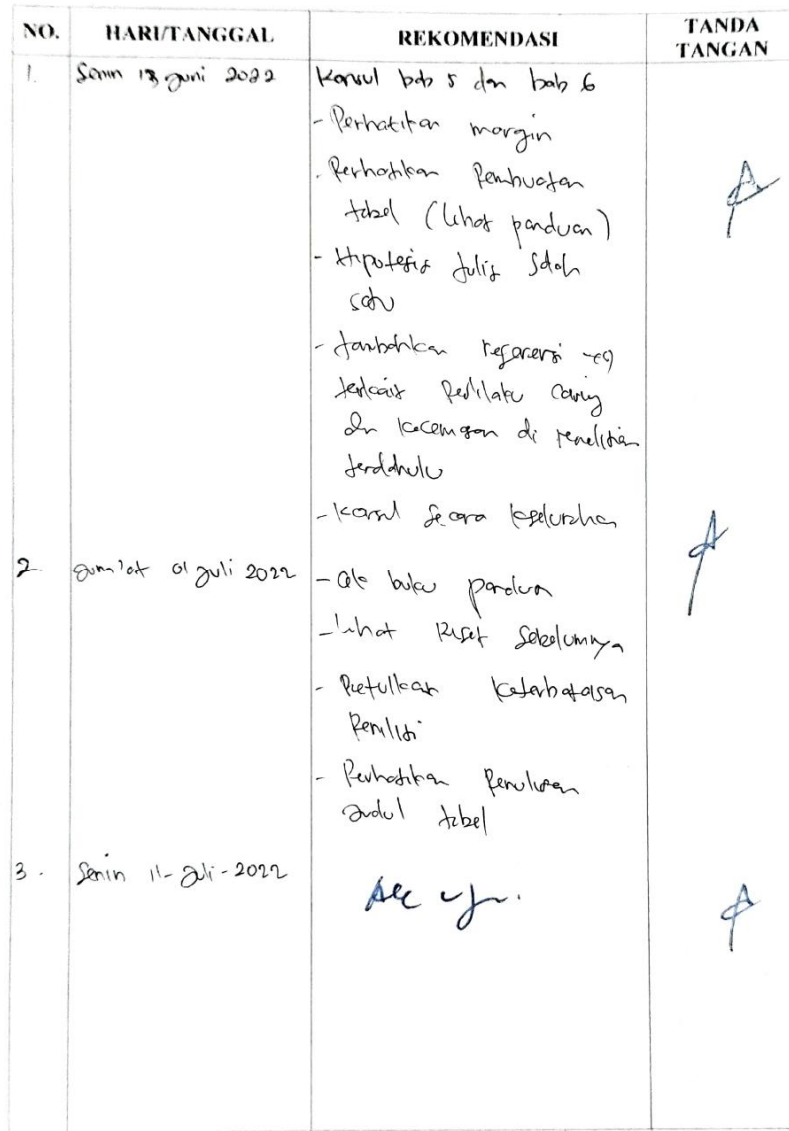 NO. HARI/TANGGAL REKOMENDASI TANDA TANGAN
1. Senin 13 Juni 2022 Konsul bab 5 dan bab 6
- Perhatikan margin
- Perhatikan Pembuatan
tabel (lihat panduan)
- Hipotesis tulis salah
satu
- tambahkan referensi
terkait Perilaku Caring
dan kecemasan di penelitian
terdahulu
- Konsul secara keseluruhan
2. Jum'at 01 Juli 2022 - Cek buku panduan
- Lihat Riset Sebelumnya
- Keterbatasan
Peneliti
- Perhatikan Penulisan
Judul tabel
3. Senin 11-Juli-2022 Acc